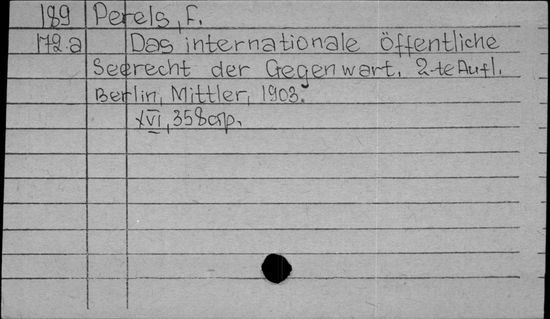 189 Perels, F.
172.a Das internationale öffentliche
Seerecht der Gegenwart. 2-te Aufl.
Berlin, Mittler, 1903.
XVI, 358 стр.